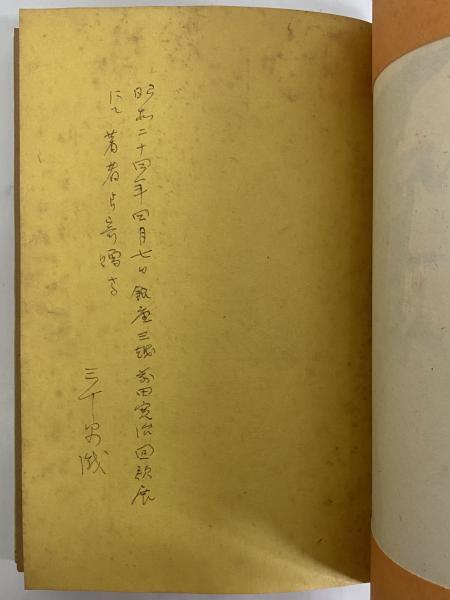 昭和二十四年四月七日銀座三越前田寛治回顧展
にて著者より寄贈さる
三下